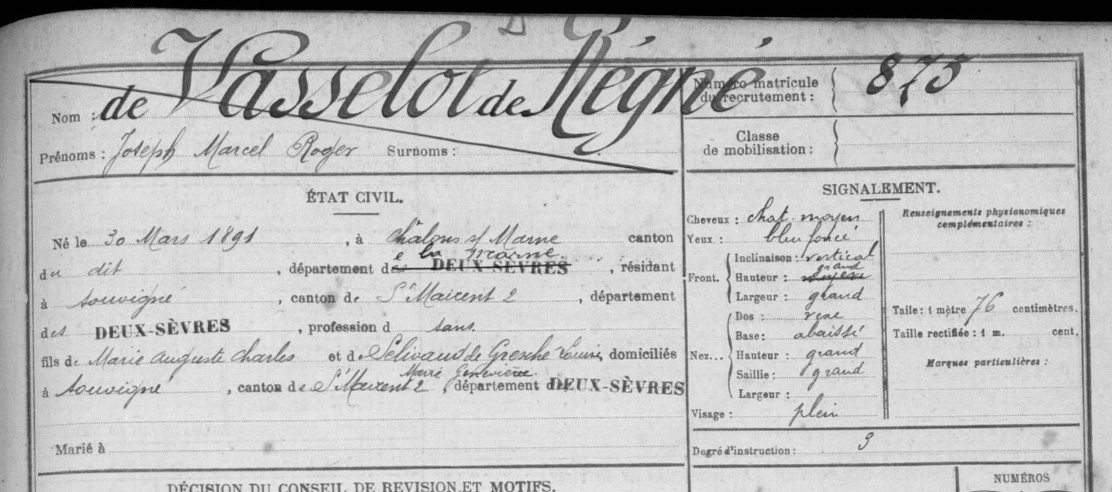 Nom : de Vasselot de Régné
Prénoms : Joseph Marcel Roger Surnoms :
Numéro matricule du recrutement : 875
Classe de mobilisation :
ÉTAT CIVIL.
Né le 30 Mars 1891, à Châlons s/ Marne canton
du dit, département de la Marne DEUX-SÈVRES, résidant
à Souvigné, canton de St Maixent 2, département
des DEUX-SÈVRES, profession d sans
fils de Marie Auguste Charles et de de Gresche Louise domiciliés
Marie Geneviève
à Souvigné, canton de St Maixent 2, département des DEUX-SÈVRES
Marié à
DÉCISION DU CONSEIL DE REVISION ET MOTIFS.
SIGNALEMENT.
Cheveux : chat. moyen
Yeux : bleu foncé
Front.
Inclinaison : vertical
Hauteur : grand
Largeur : grand
Nez...
Dos :
Base : abaissé
Hauteur : grand
Saillie : grand
Largeur :
Visage : plein
Renseignements physionomiques
complémentaires :
Taille : 1 mètre 76 centimètres.
Taille rectifiée : 1 m. cent.
Marques particulières :
Degré d'instruction : 3
NUMÉROS